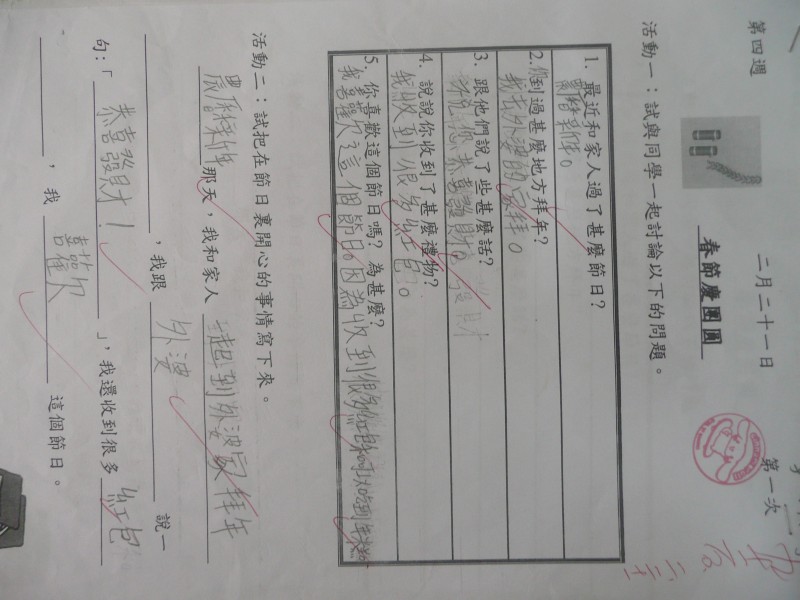 第四週
二月二十一日
第一次
春節慶團圓
活動一：試與同學一起討論以下的問題。
1. 最近和家人過了甚麼節日？
農曆新年。
2. 你到過甚麼地方拜年？
我去外婆的家拜。
3. 跟他們說了些甚麼話？
我說恭喜發財。
4. 說說你收到了甚麼禮物？
我收到很多紅包。
5. 你喜歡這個節日嗎？為甚麼？
我喜歡這個節日。因為收到很多紅包和可以吃到年糕。
活動二：試把在節日裏開心的事情寫下來。
農曆新年那天，我和家人一起到外婆家拜年
，我跟外婆說一
句：「恭喜發財！」，我還收到很多紅包
，我喜歡這個節日。